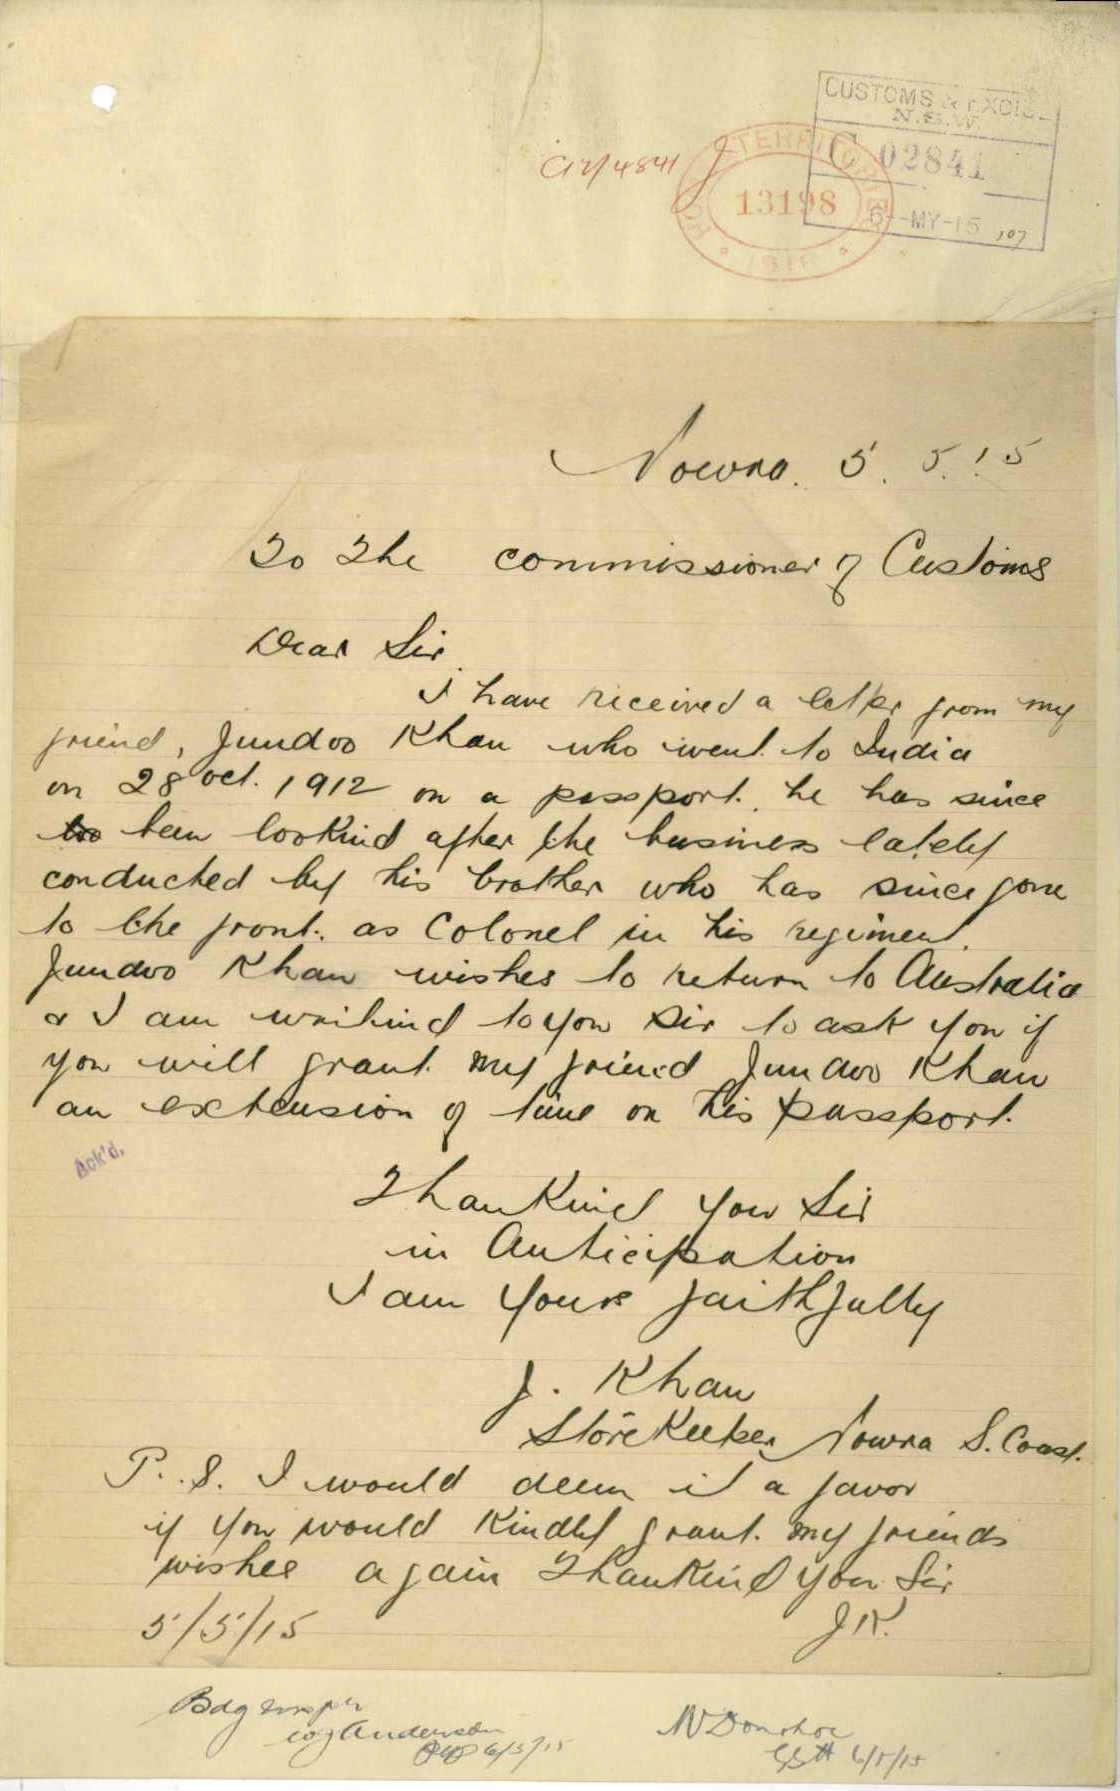 CUSTOMS & EXCISE
N.S.W.
C 02841
6-MY-15 ,07
C15/4841
TERRITORIES
13198
Nowra. 5. 5. 15
To The commissioner of Customs
Dear Sir
I have received a letter from my
friend, Jundoo Khan who went to India
on 28 oct. 1912 on a passport. he has since
been lookind after the business lately
conducted by his brother who has since gone
to the front. as Colonel in his regiment.
Jundoo Khan wishes to return to Australia
& I am writind to you sir to ask you if
you will grant my friend Jundoo Khan
an extension of time on his passport.
Ack'd.
Thankind you Sir
in Anticipation
I am Yours faithfully
J. Khan
Storekeeper Nowra S. Coast.
P.. S. I would deem it a favor
if you would kindly grant. my friends
wishes again Thankind you Sir
5/5/15 J K.
Bdg Inspr
Anderson
6/5/15
Donohoe
6/5/15